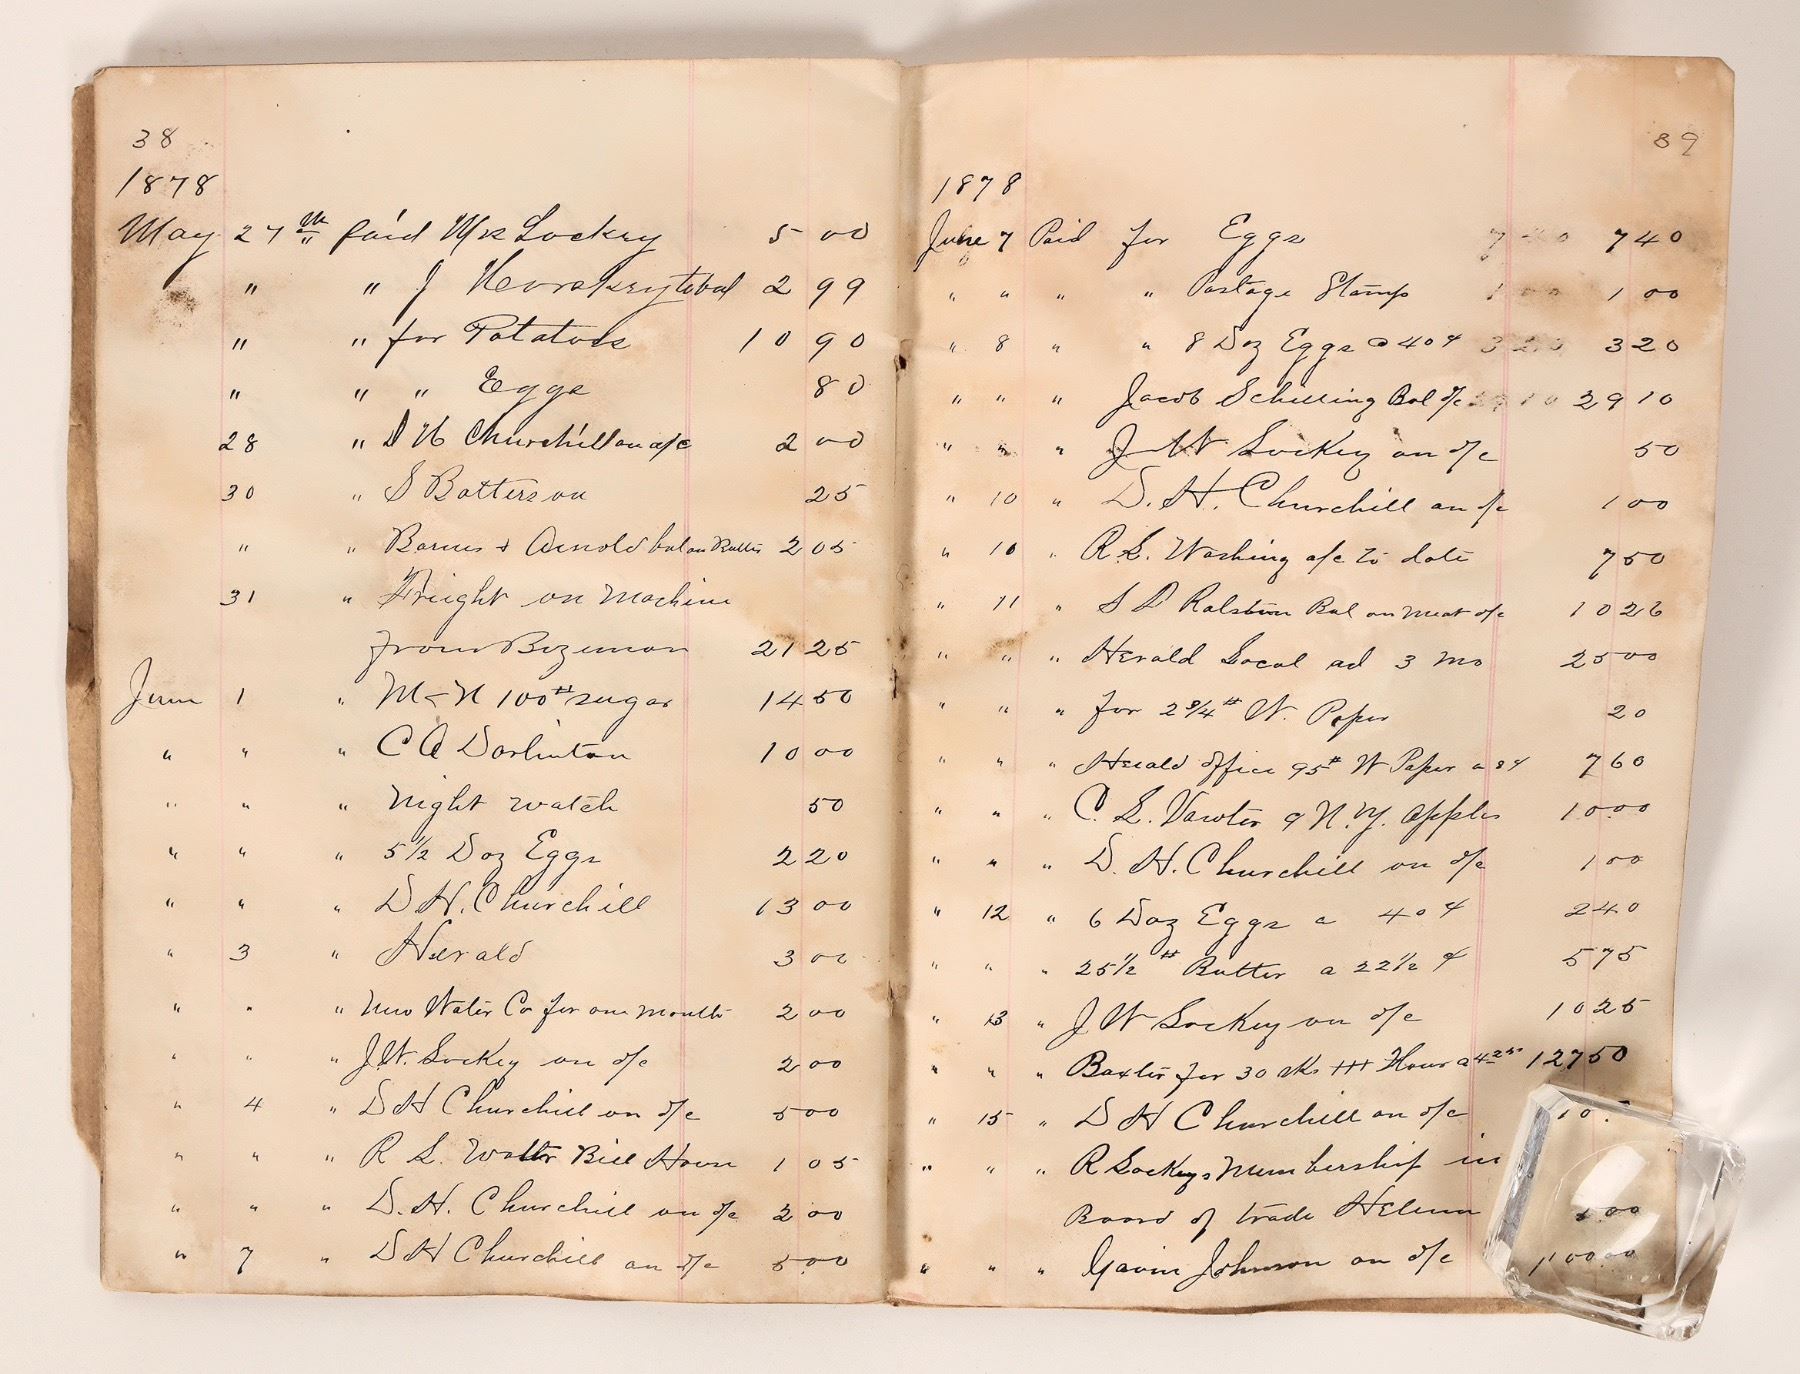 38
1878
May 27th paid Mr Lockey 5 00
" " J to bal 2 99
" " for Potatoes 10 90
" " " Eggs 80
28 " D H Churchill on a/c 2 00
30 " S Batterson 25
" " Barnes & Arnold bal on Butter 2 05
31 " Freight on Machine
from Bozeman 21 25
June 1 " M & N 100# sugar 14 50
" " " C A Darlinton 10 00
" " " Night watch 50
" " " 5 1/2 Doz Eggs 2 20
" " " D H. Churchill 13 00
" 3 " Herald 3 00
" " " New Water Co for one month 2 00
" " " J W. Lockey on a/c 2 00
" 4 " D H Churchill on a/c 5 00
" " " R L. Bill 1 05
" " " D. H. Churchill on a/c 2 00
" 7 " D H Churchill on a/c 5 00
39
1878
June 7 Paid for Eggs 7 40 7 40
" " " " Postage Stamp 1 00 1 00
" 8 " " 8 Doz Eggs @ 40¢ 3 20 3 20
" " " Jacob Schilling Bal a/c 29 10 29 10
" " " J W Lockey on a/c 50
" 10 " D. H. Churchill on a/c 1 00
" 10 " R L. Washing a/c to date 7 50
" 11 " S D Ralston Bal on meat a/c 10 26
" " " Herald Local ad 3 mo 25 00
" " " for 2 3/4# W. Paper 20
" " " Herald office 95# W Paper a 8¢ 7 60
" " " C. L. Vawter 9 N. Y. apples 10 00
" " " D. H. Churchill on a/c 1 00
" 12 " 6 Doz Eggs a 40¢ 2 40
" " " 25 1/2# Butter a 22 1/2¢ 5 75
" 13 " J W Lockey on a/c 10 25
" " " Baxter for 30 sks HHH Flour a 4 25 127 50
" 15 " D H Churchill on a/c 10
" " " R Lockeys Membership in
Board of trade Helena 00
" " " Gavin Johnson on a/c 100 00